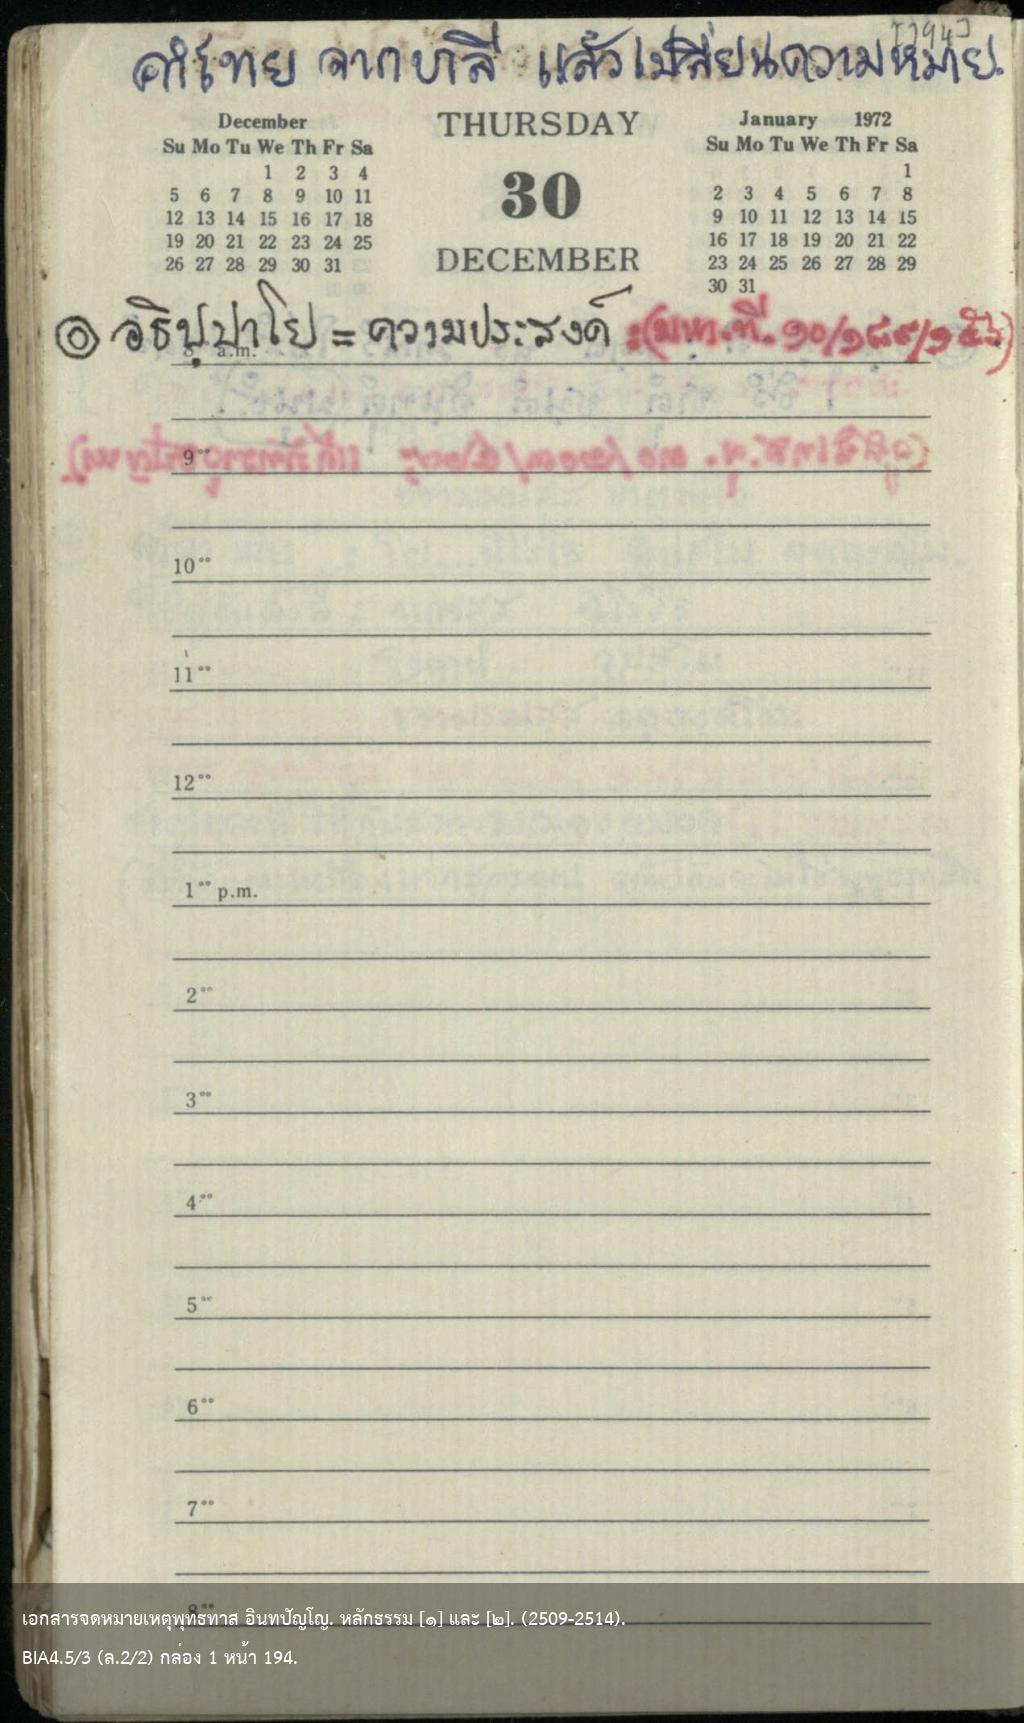 [194]
คำไทย จากบาลี แล้วเปลี่ยนความหมาย.
December
Su Mo Tu We Th Fr Sa
1 2 3 4
5 6 7 8 9 10 11
12 13 14 15 16 17 18
19 20 21 22 23 24 25
26 27 28 29 30 31
THURSDAY
30
DECEMBER
January 1972
Su Mo Tu We Th Fr Sa
1
2 3 4 5 6 7 8
9 10 11 12 13 14 15
16 17 18 19 20 21 22
23 24 25 26 27 28 29
30 31
อธิปฺปาโย = ความประสงค์ :(มหา.ที. ๑๐/๑๘๙/๑๕๖)
8 a.m.
9⁰⁰
10⁰⁰
11⁰⁰
12⁰⁰
1⁰⁰ p.m.
2⁰⁰
3⁰⁰
4⁰⁰
5⁰⁰
6⁰⁰
7⁰⁰
8⁰⁰
เอกสารจดหมายเหตุพุทธทาส อินทปัญโญ. หลักธรรม [๑] และ [๒]. (2509-2514).
BIA4.5/3 (ล.2/2) กล่อง 1 หน้า 194.